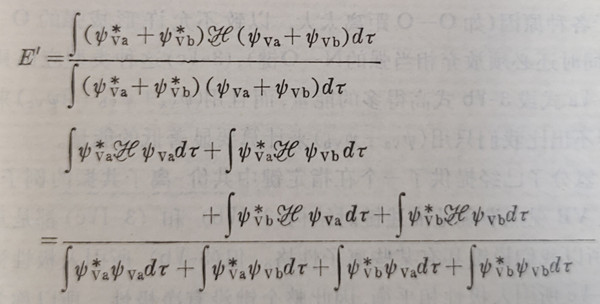 E′ = ∫(ψ*Va + ψ*Vb)ℋ(ψVa + ψVb)dτ
∫(ψ*Va + ψ*Vb)(ψVa + ψVb)dτ
∫ψ*VaℋψVadτ + ∫ψ*VaℋψVbdτ
+ ∫ψ*VbℋψVadτ + ∫ψ*VbℋψVbdτ
=
∫ψ*VaψVadτ + ∫ψ*VaψVbdτ + ∫ψ*VbψVadτ + ∫ψ*VbψVbdτ